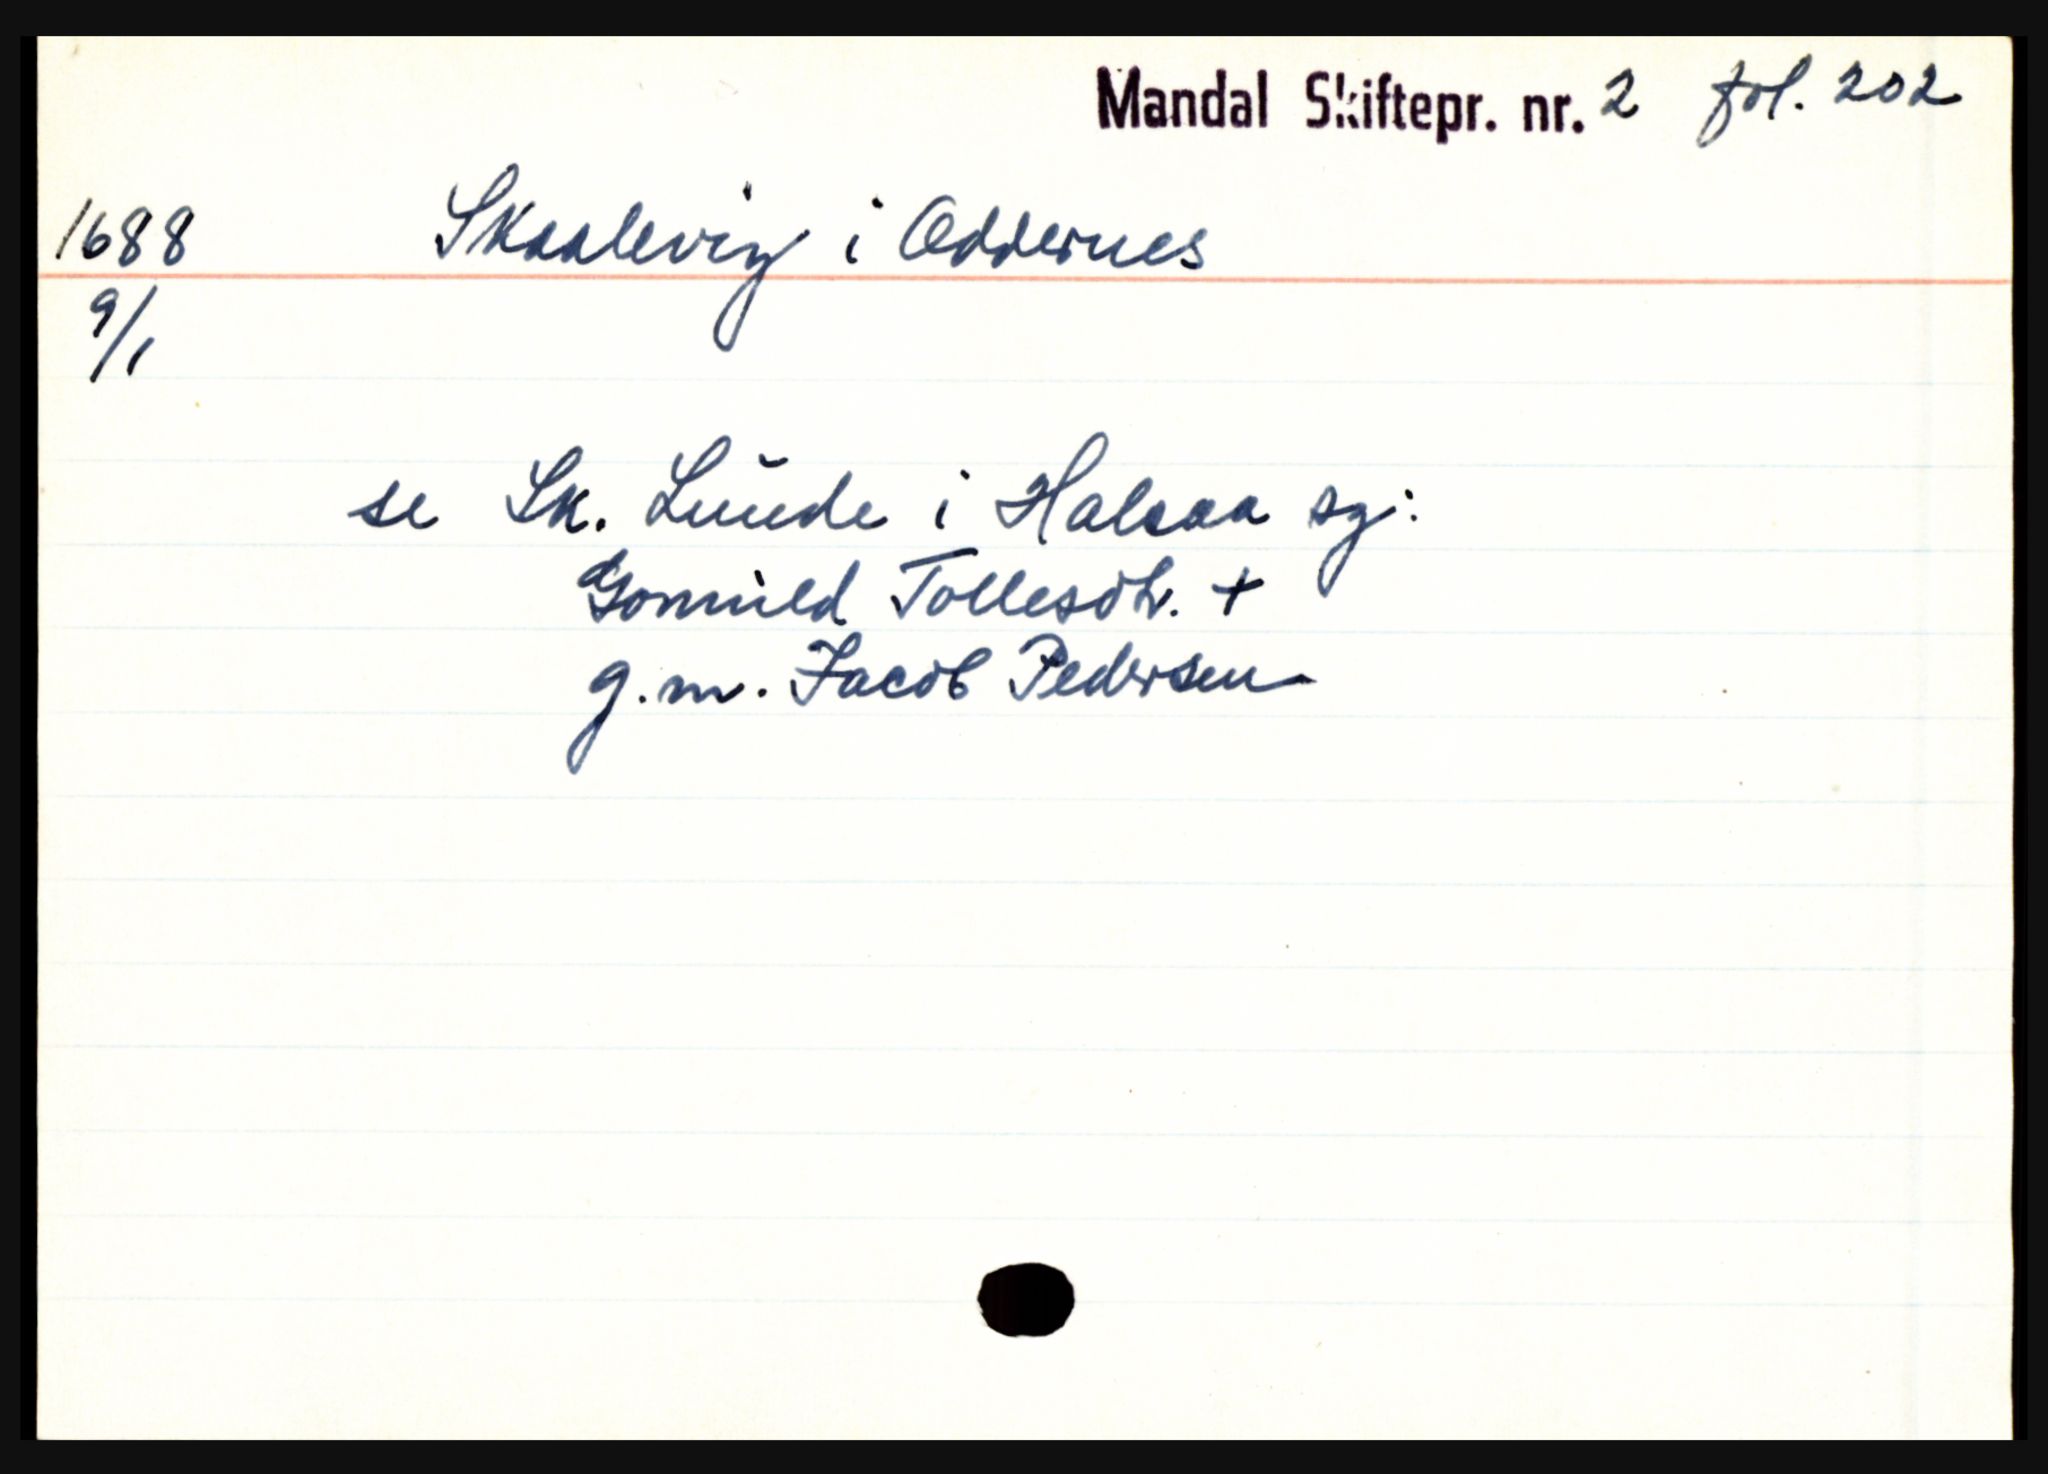 Mandal Skiftepr. nr. 2 fol. 202
1688 Skaalevig i Oddernes
9/1
se Sk. Lunde i Halsaa sg:
Gomild Tollesdtr. +
g.m. Jacob Pedersen